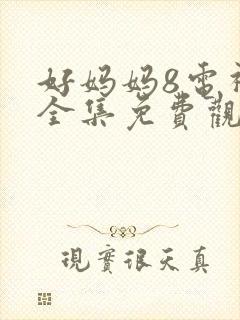 好妈妈8电
全集免費觀
現實很天真